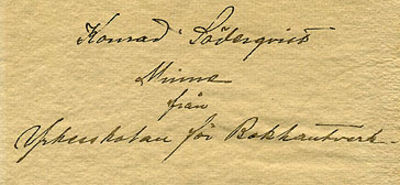 Konrad Söderqvist
Minne
från
Yrkesskolan för Bokhantverk.